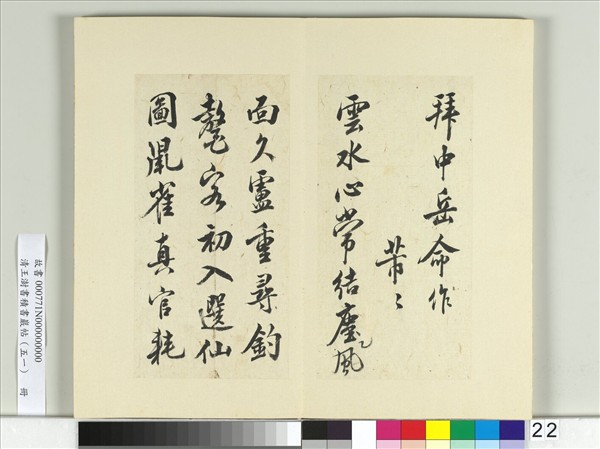 拜中岳命作
芾〻
雲水心常結塵風
面久盧重尋釣
鼇客初入選仙
圖鼠雀真官耗
故書 000771N000000000
清王澍書積書巖帖(五一) 冊
22